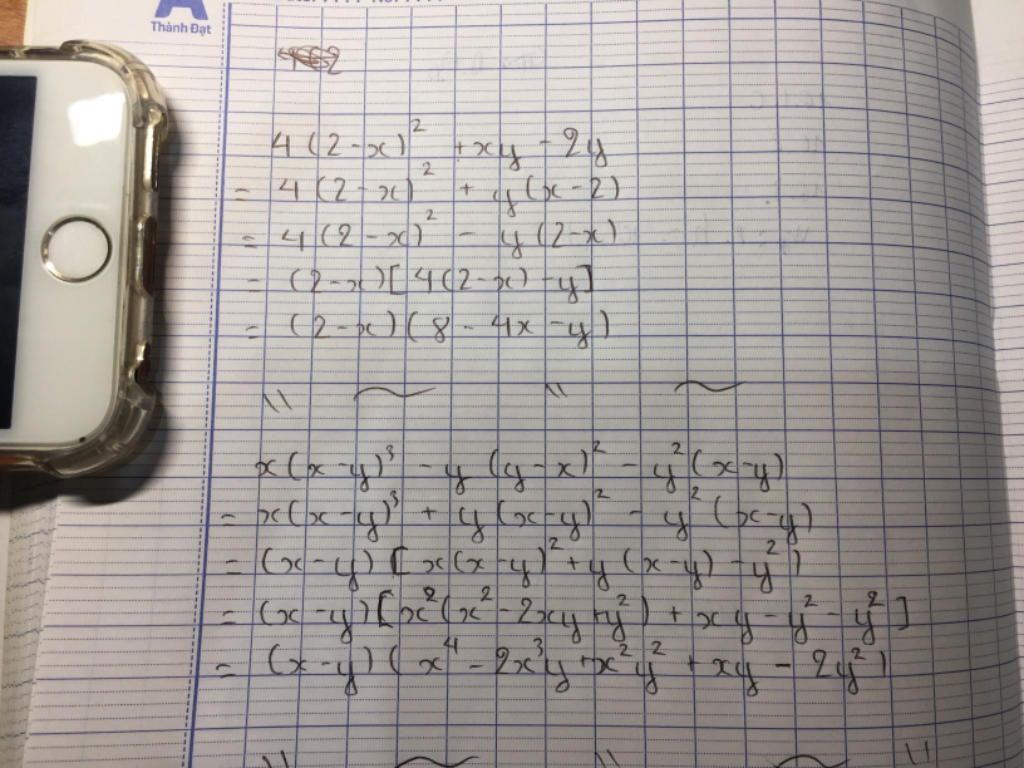 Thành Đạt
4(2-x)² + xy - 2y
= 4(2-x)² + y(x-2)
= 4(2-x)² - y(2-x)
= (2-x)[4(2-x) - y]
= (2-x)(8 - 4x - y)
x(x-y)³ - y(y-x)² - y²(x-y)
= x(x-y)³ + y(x-y)² - y²(x-y)
= (x-y)[x(x-y)² + y(x-y) - y²)
= (x-y)[x²(x² - 2xy + y²) + xy - y² - y²]
= (x-y)(x⁴ - 2x³y + x²y² + xy - 2y²)